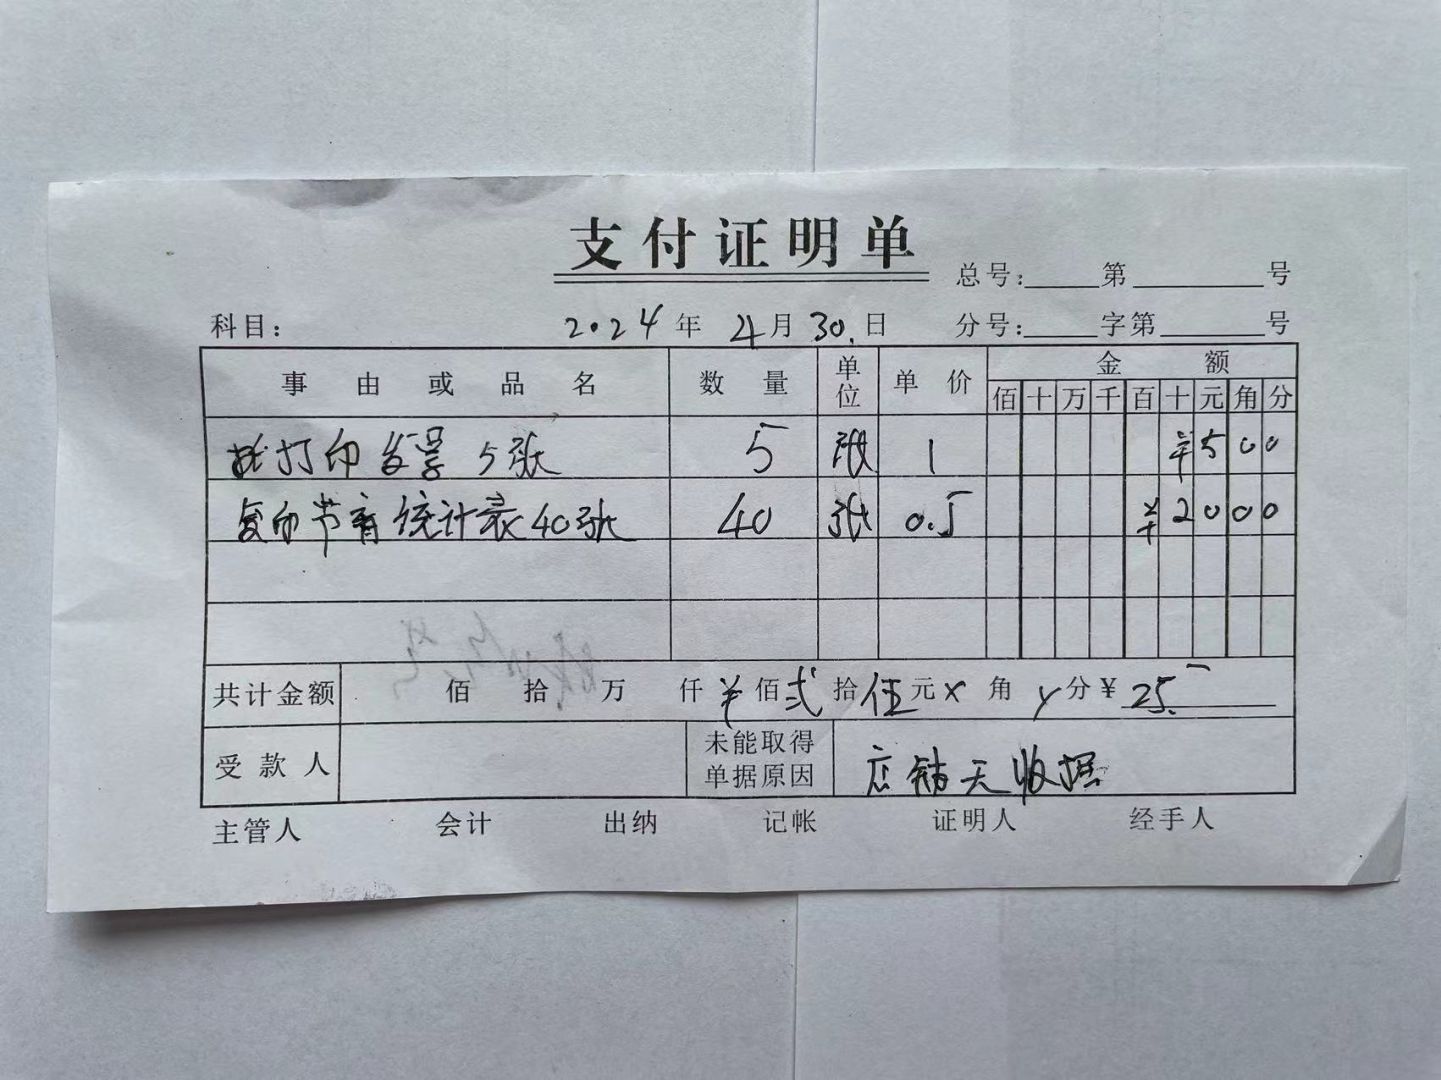 支付证明单
总号:____第________号
科目: 2024年4月30.日 分号:____字第______号
事由或品名 数量 单位 单价 金额
佰十万千百十元角分
打印发票5张 5 张 1 ¥500
复印节育统计表40张 40 张 0.5 ¥2000
共计金额 佰 拾 万 仟¥佰弍拾伍元x角y分¥25.
受款人 未能取得单据原因 店铺无收据
主管人 会计 出纳 记帐 证明人 经手人